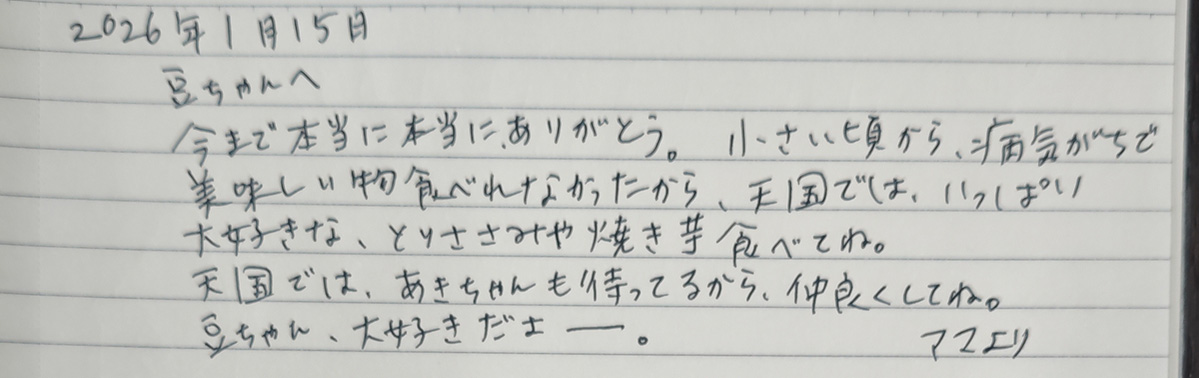 2026年1月15日
豆ちゃんへ
今まで本当に本当にありがとう。 小さい頃から、病気がちで
美味しい物食べれなかったから、天国では、いっぱい
大好きな、とりささみや焼き芋食べてね。
天国では、あきちゃんも待ってるから、仲良くしてね。
豆ちゃん、大好きだよー。 ママエリ